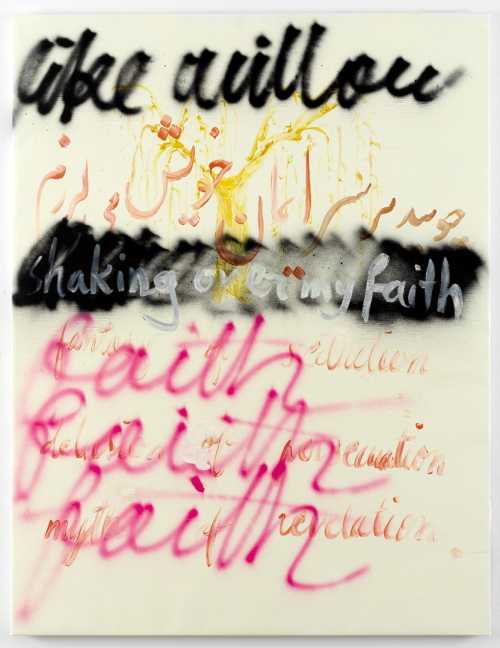 like willow
چو بید بر سر ایمان خویش می لرزم
shaking over my faith
fantasy of seduction
faith
delusion of persecution
faith
myth of revelation
faith